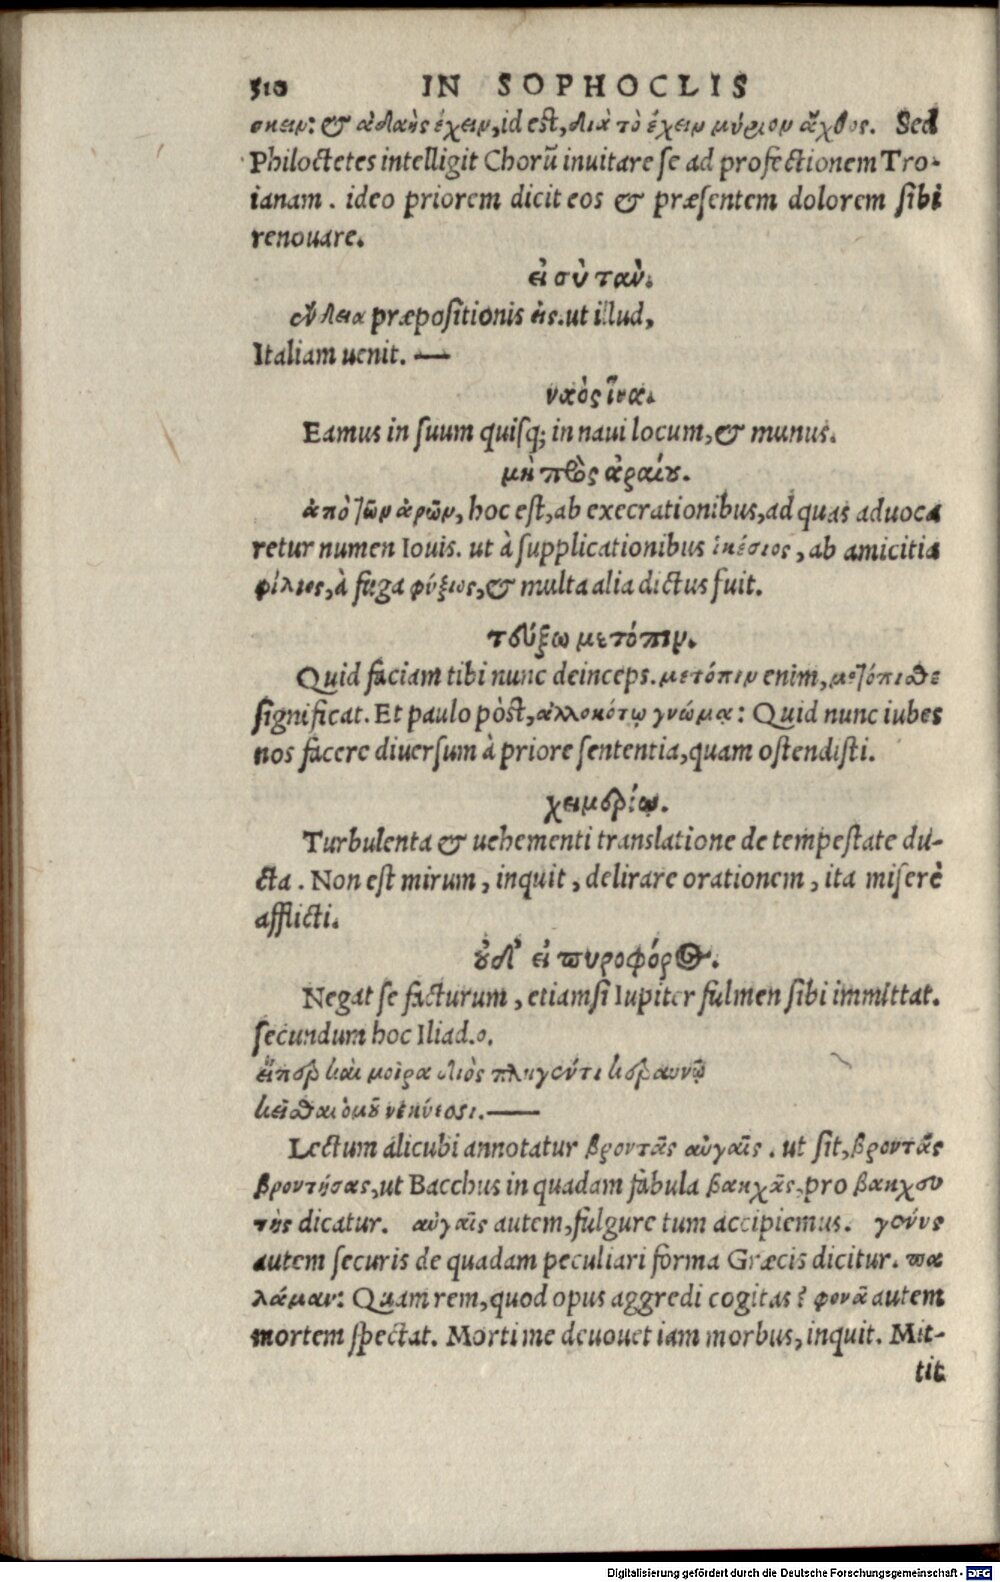 510 IN SOPHOCLIS
σκειν: & ἀδαὴς ἔχειν, id est, διὰ τὸ ἔχειν μύριον ἄχθος. Sed
Philoctetes intelligit Chorū inuitare se ad profectionem Tro-
ianam. ideo priorem dicit eos & præsentem dolorem sibi
renouare.
εἰ σὺ τὰν.
ἔνδεια præpositionis εἰς. ut illud,
Italiam uenit. —
ναὸς ἵνα.
Eamus in suum quisq; in naui locum, & munus.
μὴ πρὸς ἀραίου.
ἀπὸ τῶν ἀρῶν, hoc est, ab execrationibus, ad quas aduoca
retur numen Iouis. ut à supplicationibus ἱκέσιος, ab amicitia
φίλιος, à fuga φύξιος, & multa alia dictus fuit.
ῥέξω μετόπιν.
Quid faciam tibi nunc deinceps. μετόπιν enim, μετόπισθε
significat. Et paulo pòst, ἀλλοκότῳ γνώμᾳ: Quid nunc iubes
nos facere diuersum à priore sententia, quam ostendisti.
χειμερίῳ.
Turbulenta & uehementi translatione de tempestate du-
cta. Non est mirum, inquit, delirare orationem, ita miserè
afflicti.
οὐδ' εἰ πυροφόρος.
Negat se facturum, etiamsi Iupiter fulmen sibi immittat.
secundum hoc Iliad.o.
εἴπερ καὶ μοῖρα διὸς πληγέντι κεραυνῷ
κεῖσθαι ὁμοῦ νεκύεσσι. —
Lectum alicubi annotatur βροντᾶς αὐγαῖς. ut sit, βροντᾶς
βροντήσας, ut Bacchus in quadam fabula βακχᾶς, pro βακχευ
τὴς dicatur. αὐγαῖς autem, fulgure tum accipiemus. γένυς
autem securis de quadam peculiari forma Græcis dicitur. πα
λάμαν: Quam rem, quod opus aggredi cogitas? φονᾷ autem
mortem spectat. Morti me deuouet iam morbus, inquit. Mit-
tit
Digitalisierung gefördert durch die Deutsche Forschungsgemeinschaft - DFG